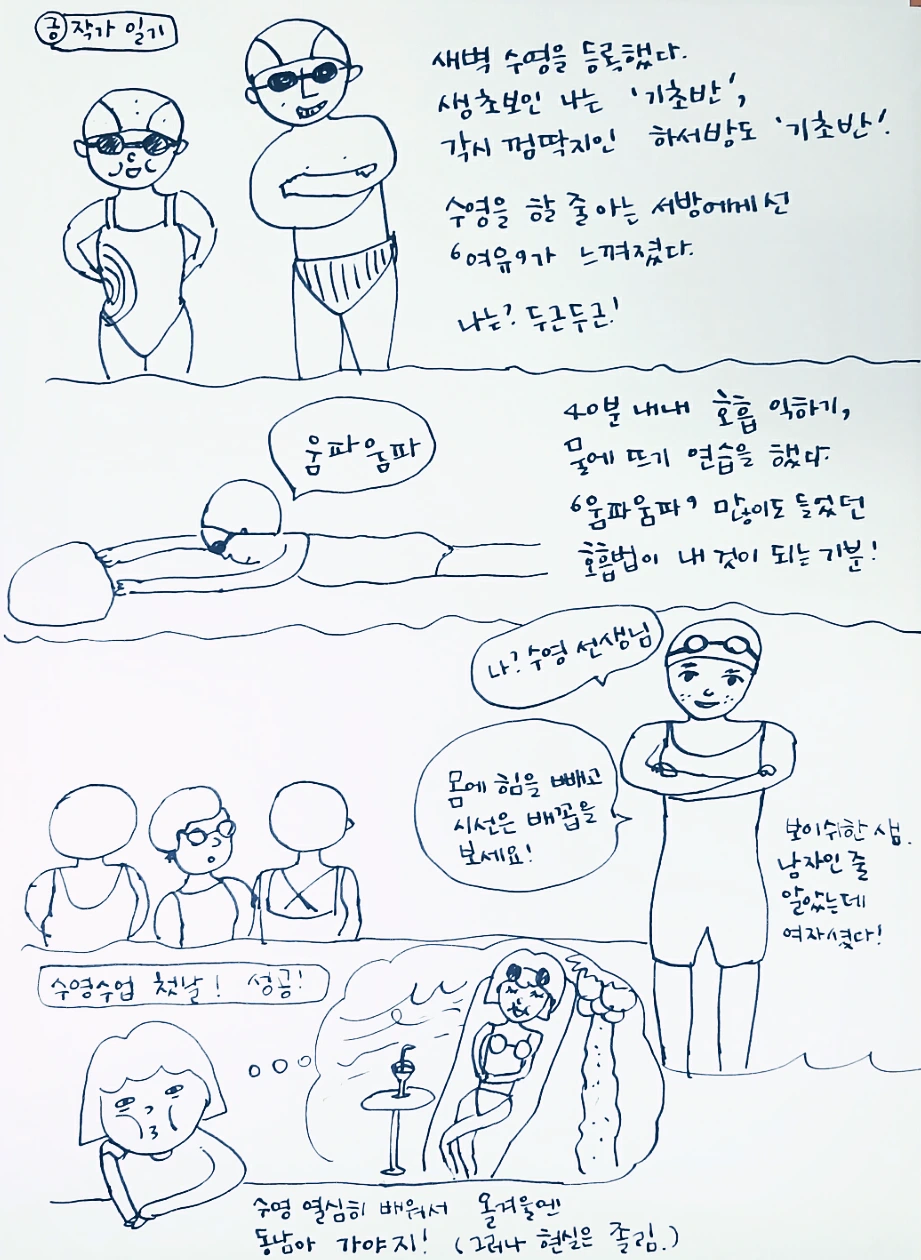 공 작가 일기
새벽 수영을 등록했다.
생초보인 나는 '기초반',
각시 껌딱지인 하서방도 '기초반'.
수영을 할 줄 아는 서방에게선
'여유'가 느껴졌다.
나는? 두근두근!
움파움파
40분 내내 호흡 익히기,
물에 뜨기 연습을 했다.
'움파움파' 많이도 들었던
호흡법이 내 것이 되는 기분!
나? 수영 선생님
몸에 힘을 빼고
시선은 배꼽을
보세요!
보이쉬한 샘.
남자인 줄
알았는데
여자셨다!
수영수업 첫날! 성공!
수영 열심히 배워서 올겨울엔
동남아 가야지! (그러나 현실은 졸림.)